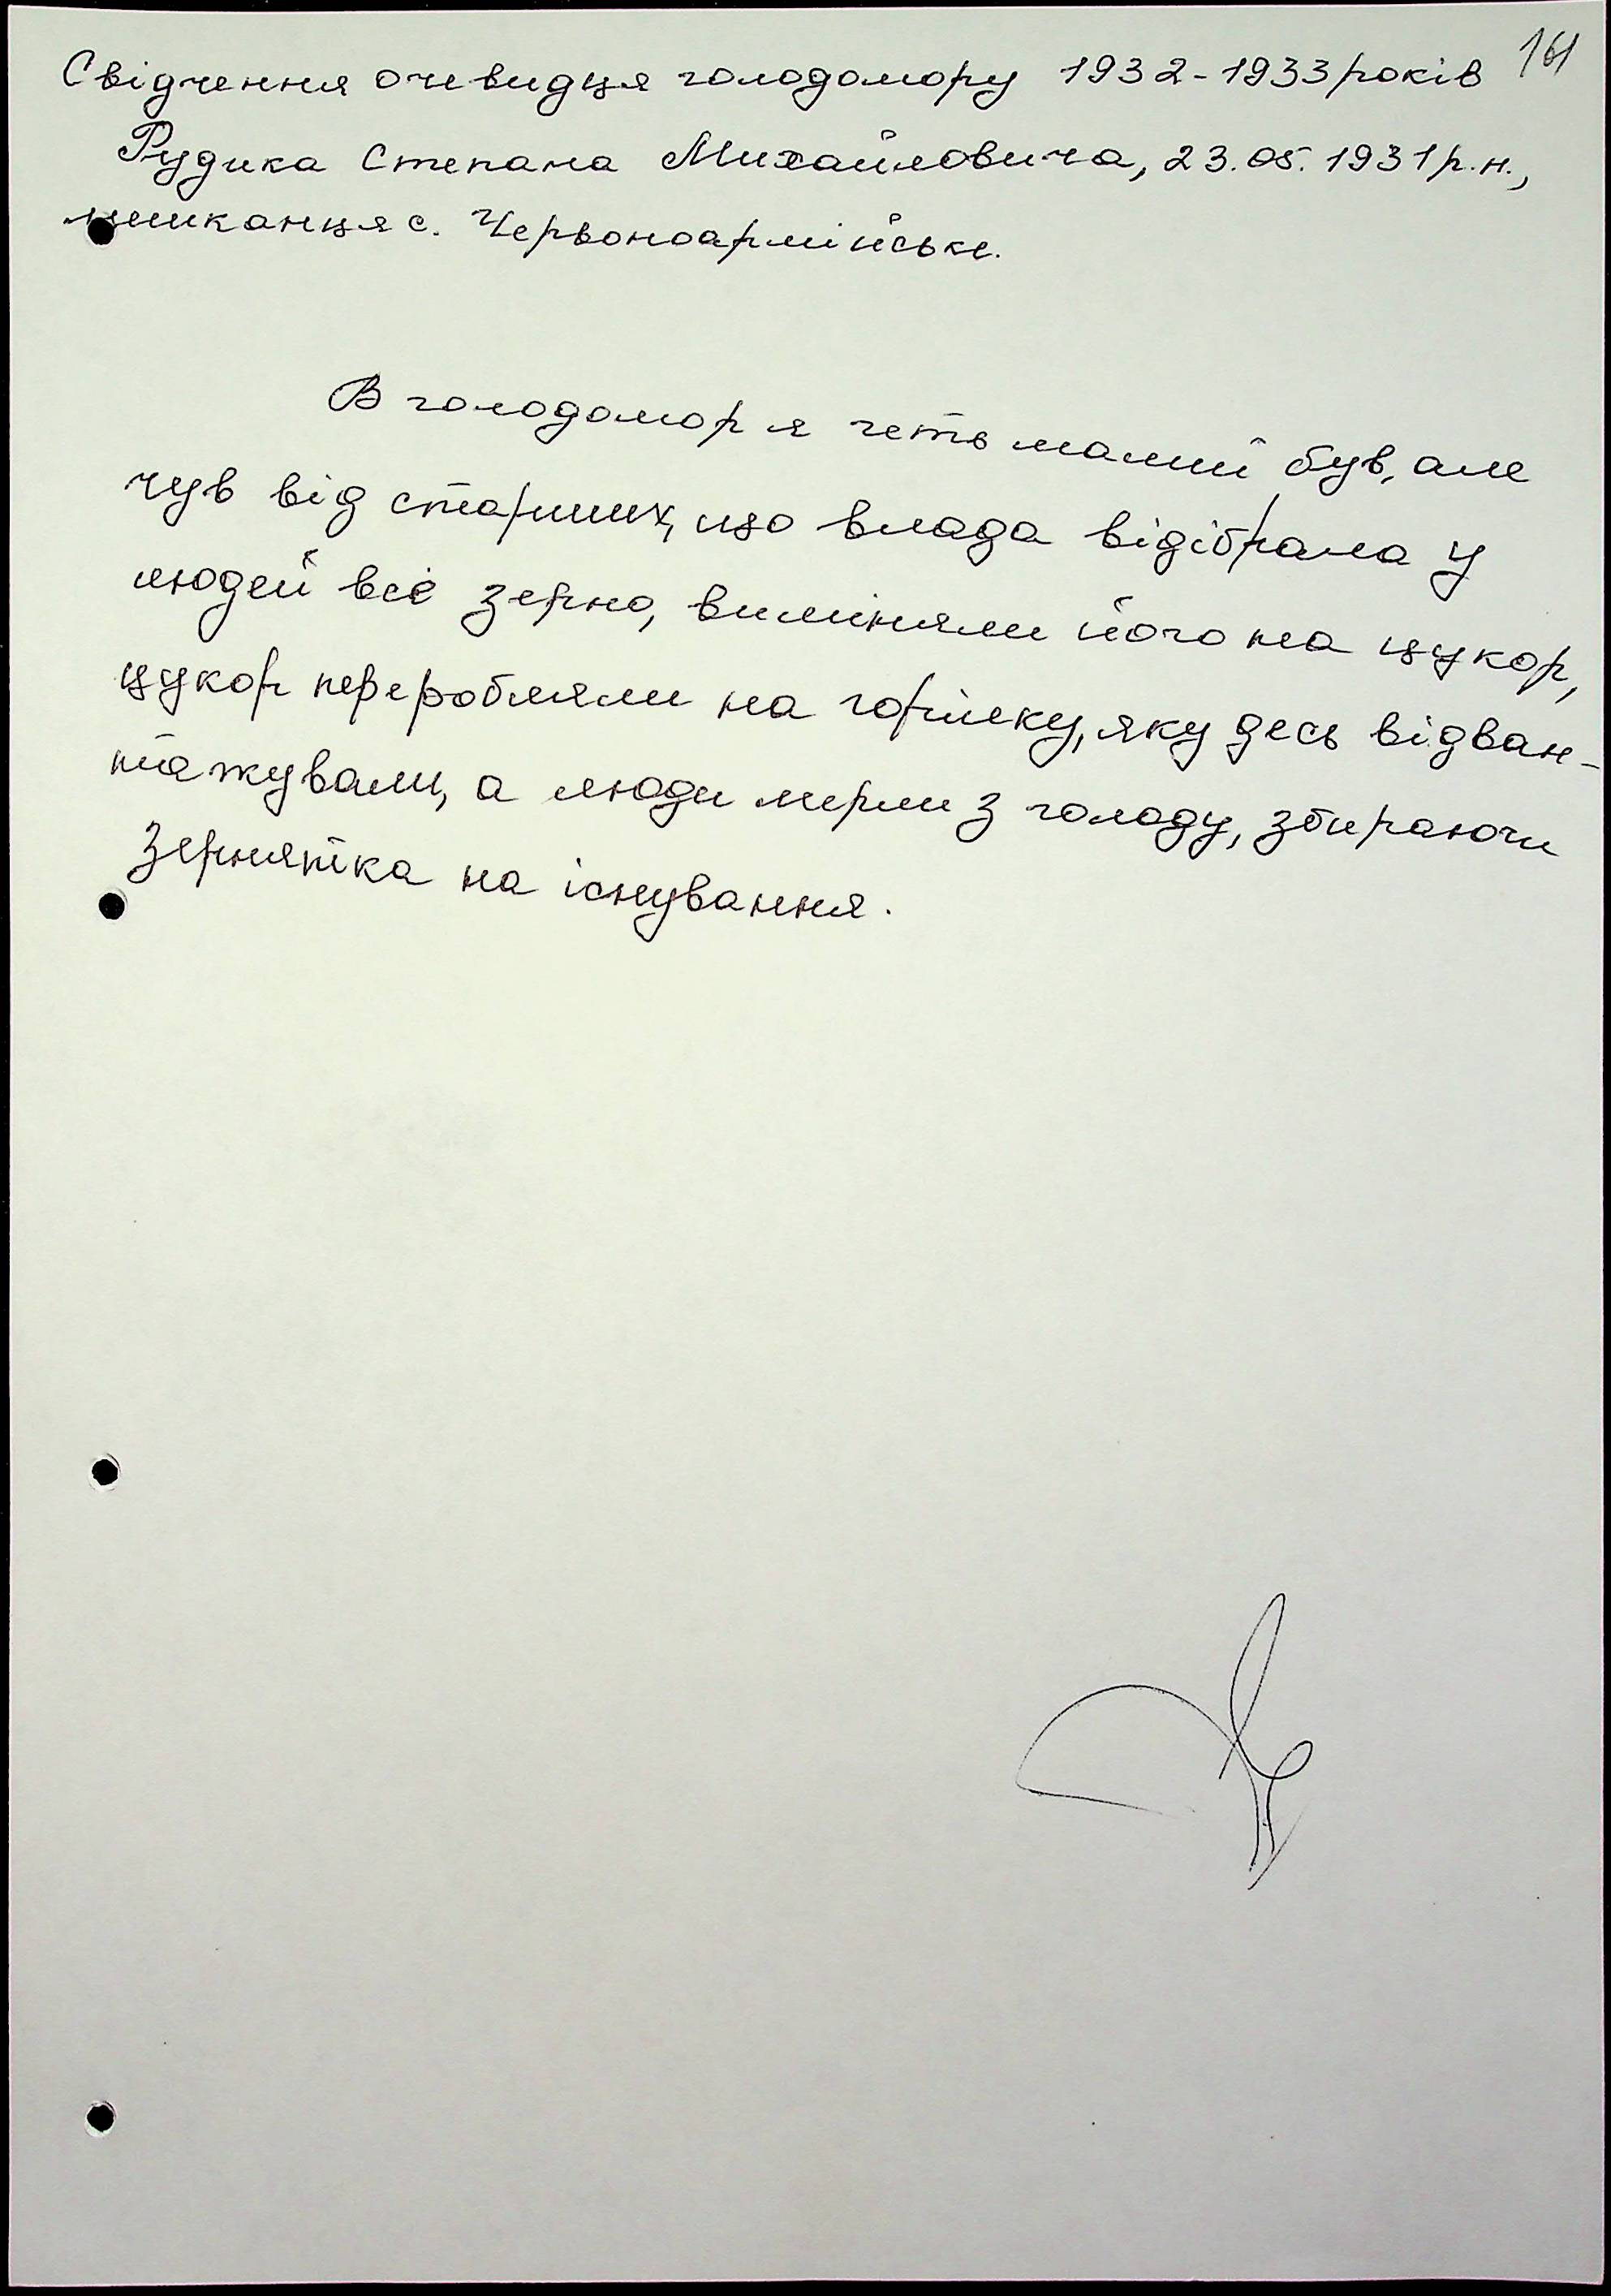 161
Свідчення очевидця голодомору 1932-1933 років
Рудика Степана Михайловича, 23.05.1931 р.н.,
мешканця с. Червоноармійське.
В голодомор я геть малий був, але
чув від старших, що влада відібрала у
людей всё зерно, виміняли його на цукор,
цукор переробляли на горілку, яку десь відван-
тажували, а люди мерли з голоду, збираючи
зернятка на існування.